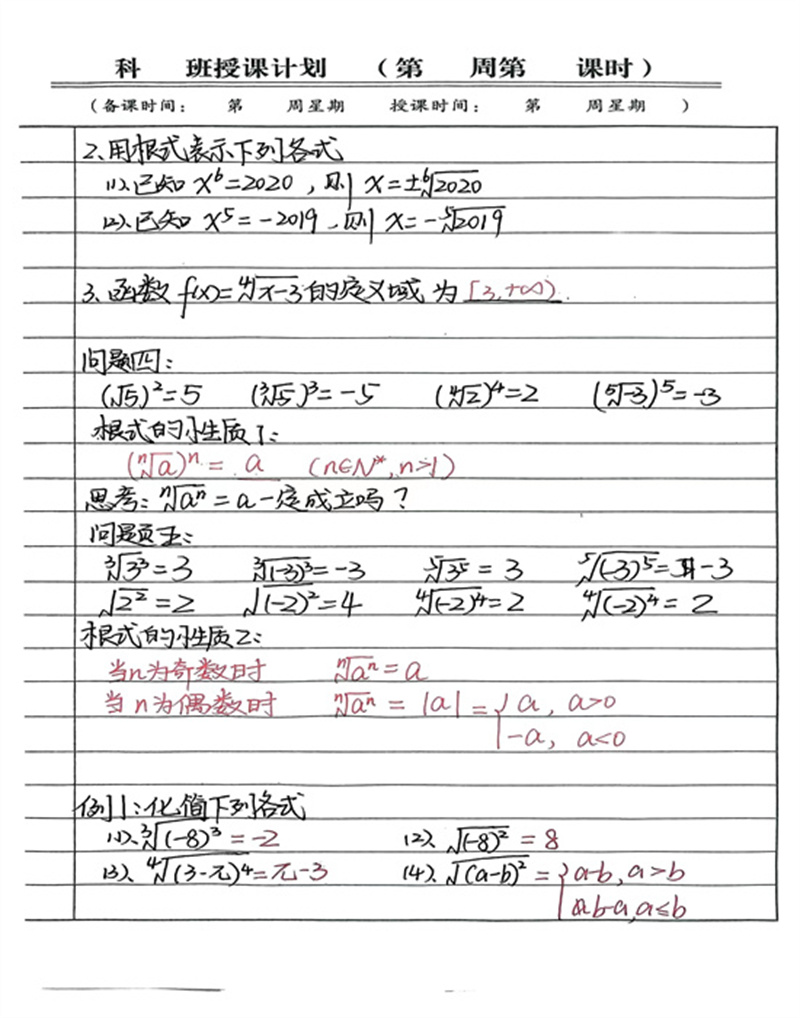 科 班授课计划 （第 周第 课时）
（备课时间： 第 周星期 授课时间： 第 周星期 ）
2、用根式表示下列各式
(1)、已知 x⁶=2020，则 x=±⁶√2020
(2)、已知 x⁵=-2019，则 x=-⁵√2019
3、函数 f(x)=⁴√x-3 的定义域为 [3,+∞).
问题四：
(√5)²=5 (³√5)³=-5 (⁴√2)⁴=2 (⁵√-3)⁵=-3
根式的性质1：
(ⁿ√a)ⁿ= a (n∈N*,n>1)
思考：ⁿ√aⁿ=a一定成立吗？
问题五：
³√3³=3 ³√(-3)³=-3 ⁵√3⁵=3 ⁵√(-3)⁵=-3
√2²=2 √(-2)²=4 ⁴√(-2)⁴=2 ⁴√(-2)⁴=2
根式的性质2：
当n为奇数时 ⁿ√aⁿ=a
当n为偶数时 ⁿ√aⁿ=|a|={a, a>0
-a, a<0
例1：化简下列各式
(1)、³√(-8)³=-2 (2)、√(-8)²=8
(3)、⁴√(3-π)⁴=π-3 (4)、√(a-b)²={a-b,a>b
b-a,a≤b